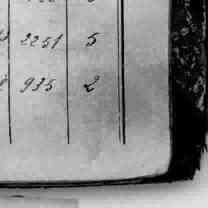 2251 5
935 2